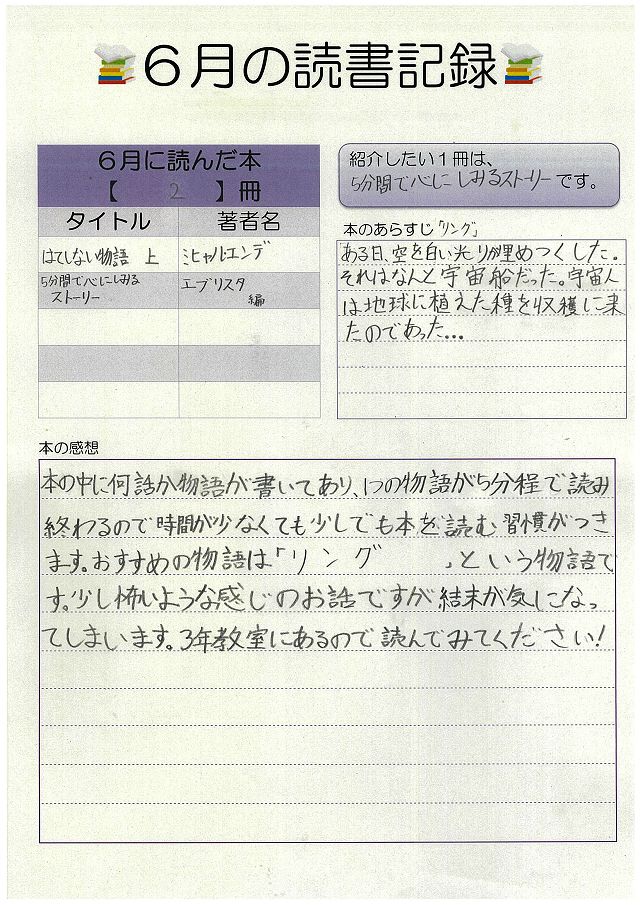 6月の読書記録
6月に読んだ本
【 2 】冊
タイトル 著者名
はてしない物語 上 ミヒャルエンデ
5分間で心にしみる
ストーリー
エブリスタ
編
紹介したい1冊は、
5分間で心にしみるストーリーです。
本のあらすじ「リング」
ある日、空を白い光りが埋めつくした。
それはなんと宇宙船だった。宇宙人
は地球に植えた種を収穫に来
たのであった...
本の感想
本の中に何話か物語が書いてあり、1つの物語が5分程で読み
終わるので時間が少なくても少しでも本を読む習慣がつき
ます。おすすめの物語は「リング 」という物語で
す。少し怖いような感じのお話ですが結末が気になっ
てしまいます。3年教室にあるので読んでみてください!